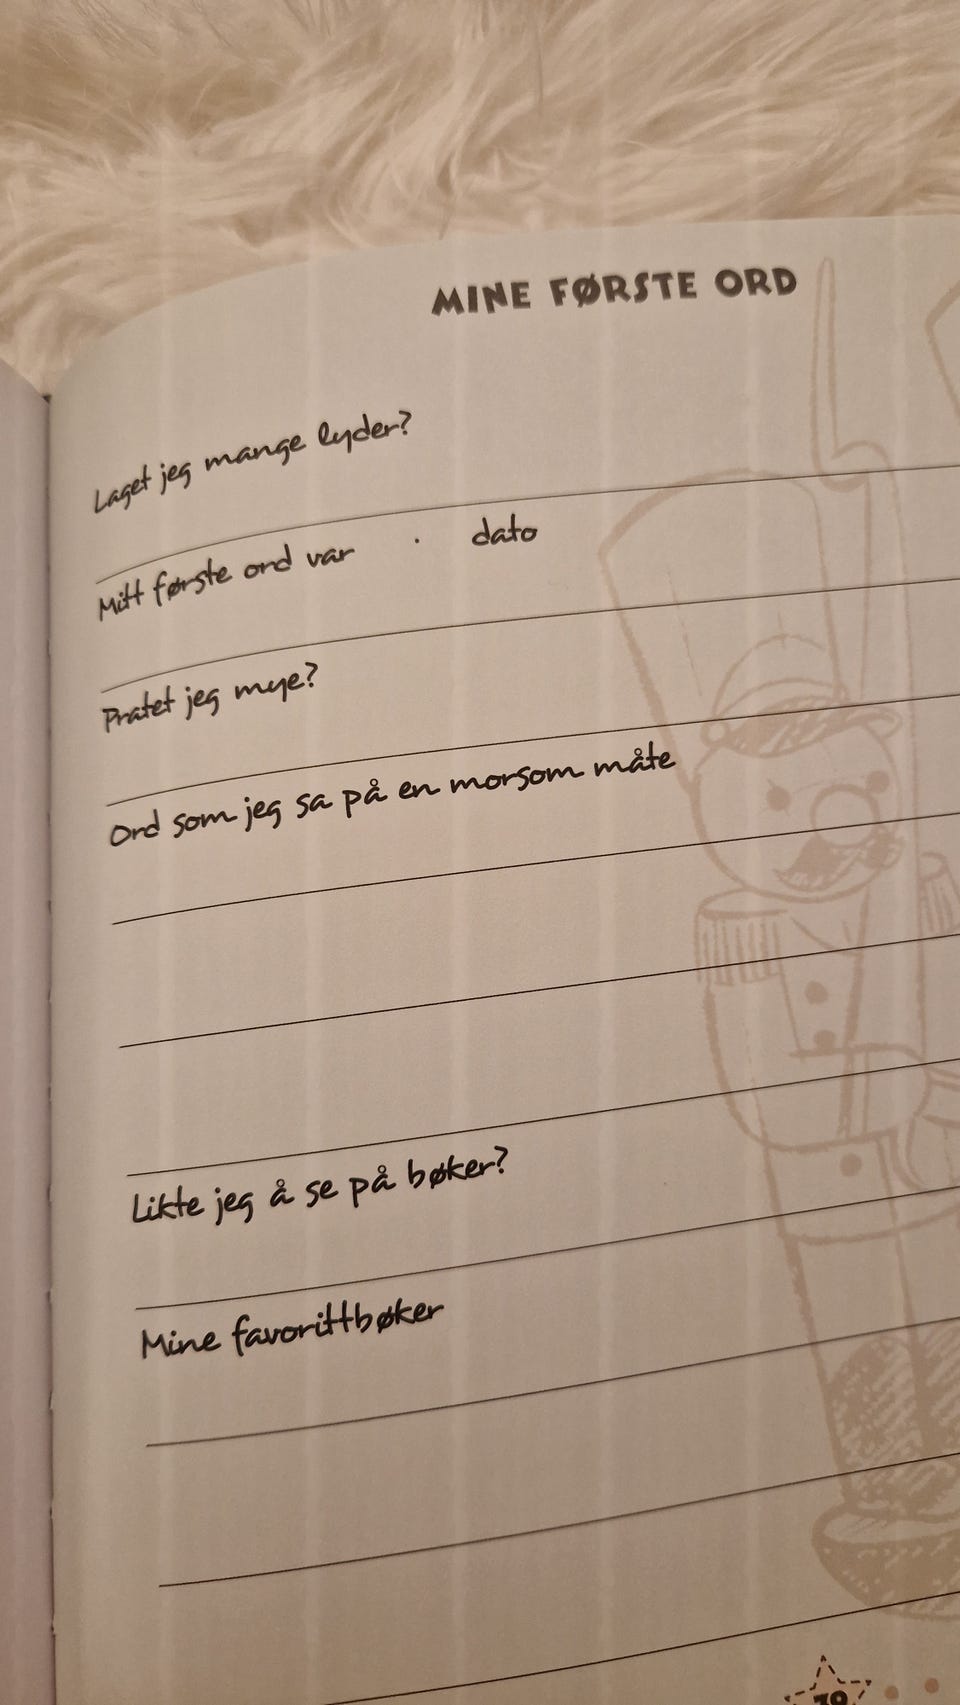 MINE FØRSTE ORD
Laget jeg mange lyder?
Mitt første ord var . dato
Pratet jeg mye?
Ord som jeg sa på en morsom måte
Likte jeg å se på bøker?
Mine favorittbøker